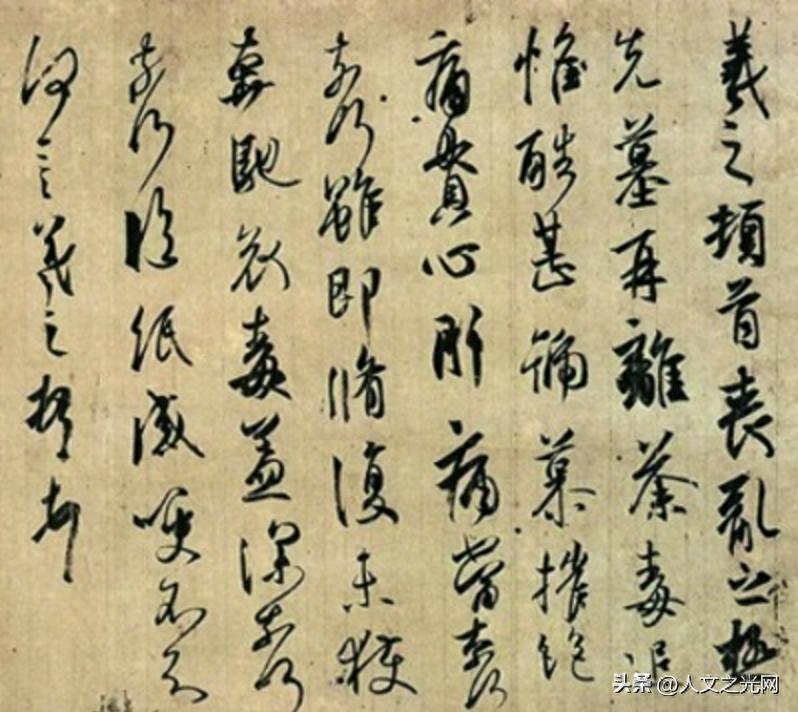 羲之頓首喪亂之極
先墓再離荼毒追
惟酷甚號慕摧絕
痛貫心肝痛當奈何
奈何雖即脩復未獲
奔馳哀毒益深奈何
奈何臨紙感哽不知
何言羲之頓首頓首
头条 @人文之光网